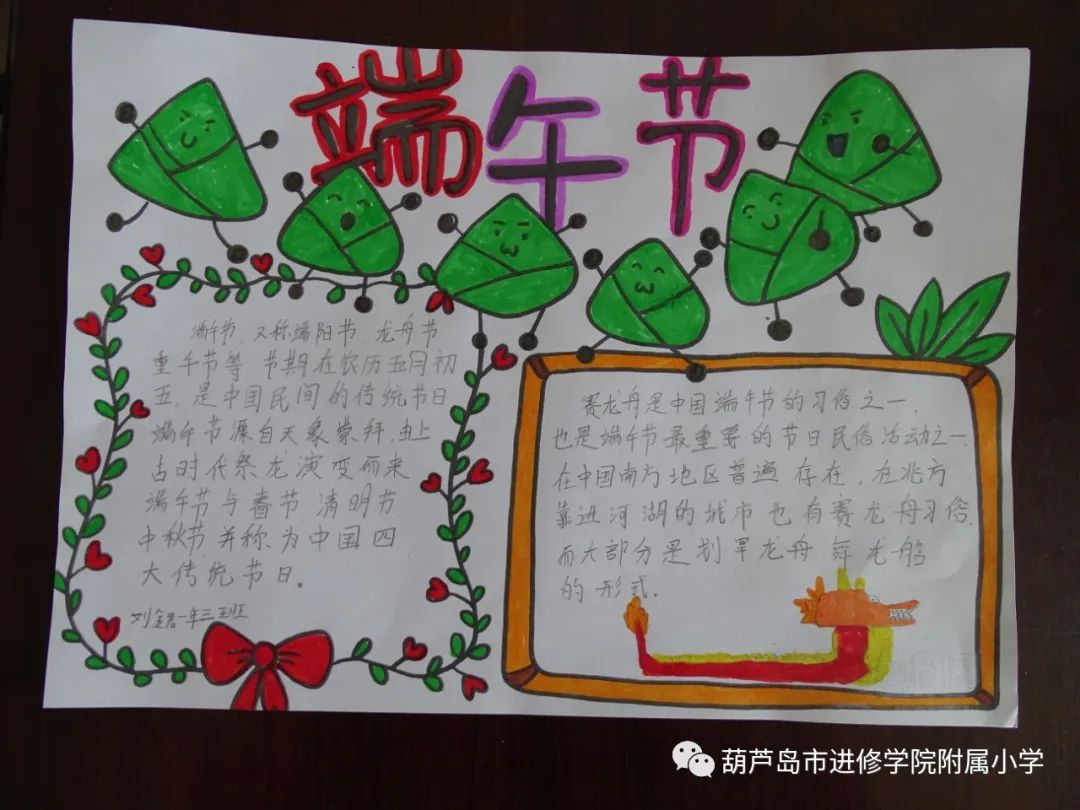 端午节
端午节,又称端阳节、龙舟节
重午节等 节期在农历五月初
五、是中国民间的传统节日
端午节源自天象崇拜,由上
古时代祭龙演变而来
端午节与春节、清明节
中秋节并称为中国四
大传统节日。
刘 一年三班
赛龙舟是中国端午节的习俗之一,
也是端午节最重要的节日民俗活动之一
在中国南方地区普遍存在,在北方
靠近河湖的城市也有赛龙舟习俗,
而大部分是划旱龙舟舞龙船
的形式.
葫芦岛市进修学院附属小学